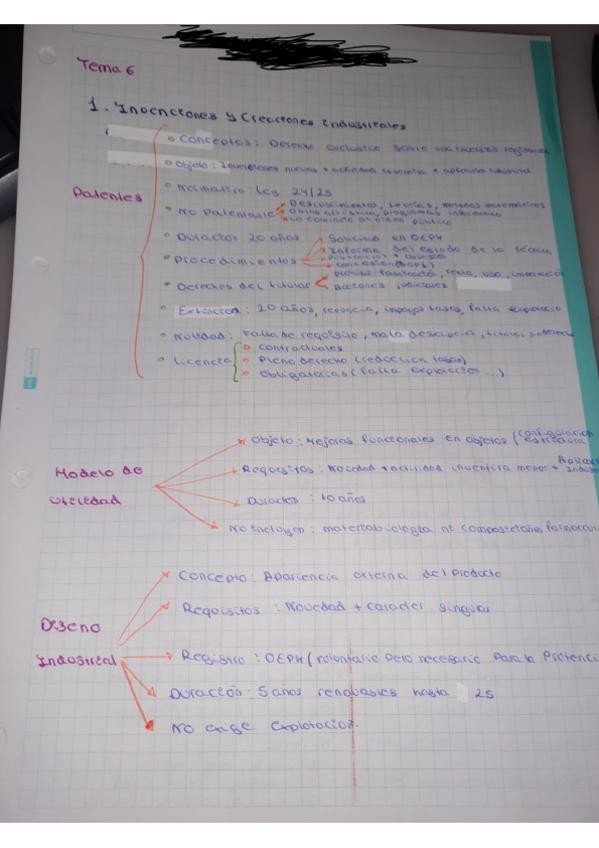 Tema 6
1. Invenciones y Creaciones industriales
Patentes
Conceptos: Derecho exclusivo sobre
Objeto: Invenciones nuevas + actividad inventiva + aplicación industrial
Normativa: Ley 24/25
No Patentable
Descubrimientos, teorías, métodos matemáticos
Obras artística, programas informático
Lo contrario al orden público
Duracion: 20 años
Procedimientos
Solicitud en OEPM
Informe del estado de la técnica
Publicación +
concesión
Derechos del titular
prohibir fabricación, venta, uso, importación
Acciones judiciales
Extincion: 20 años, renuncia, impago tasas, falta explotación
Nulidad: Falta de requisito, mala descripción, titular
Licencia
contractuales
Pleno derecho (reducción tasas)
Obligatorias (falta explotación ...)
Modelo de utilidad
Objeto: Mejoras funcionales en objetos (configuración estructura
Requisitos: Novedad + actividad inventiva menor +
Duracion: 10 años
No incluyen: materia biológica ni composiciones farmaceu
Diseno Industrial
Concepto: Apariencia externa del producto
Requisitos: Novedad + caracter singular
Registro: OEPM (voluntario pero necesario para la protenci
Duración: 5 años renovables hasta 25
No exige explotacion.